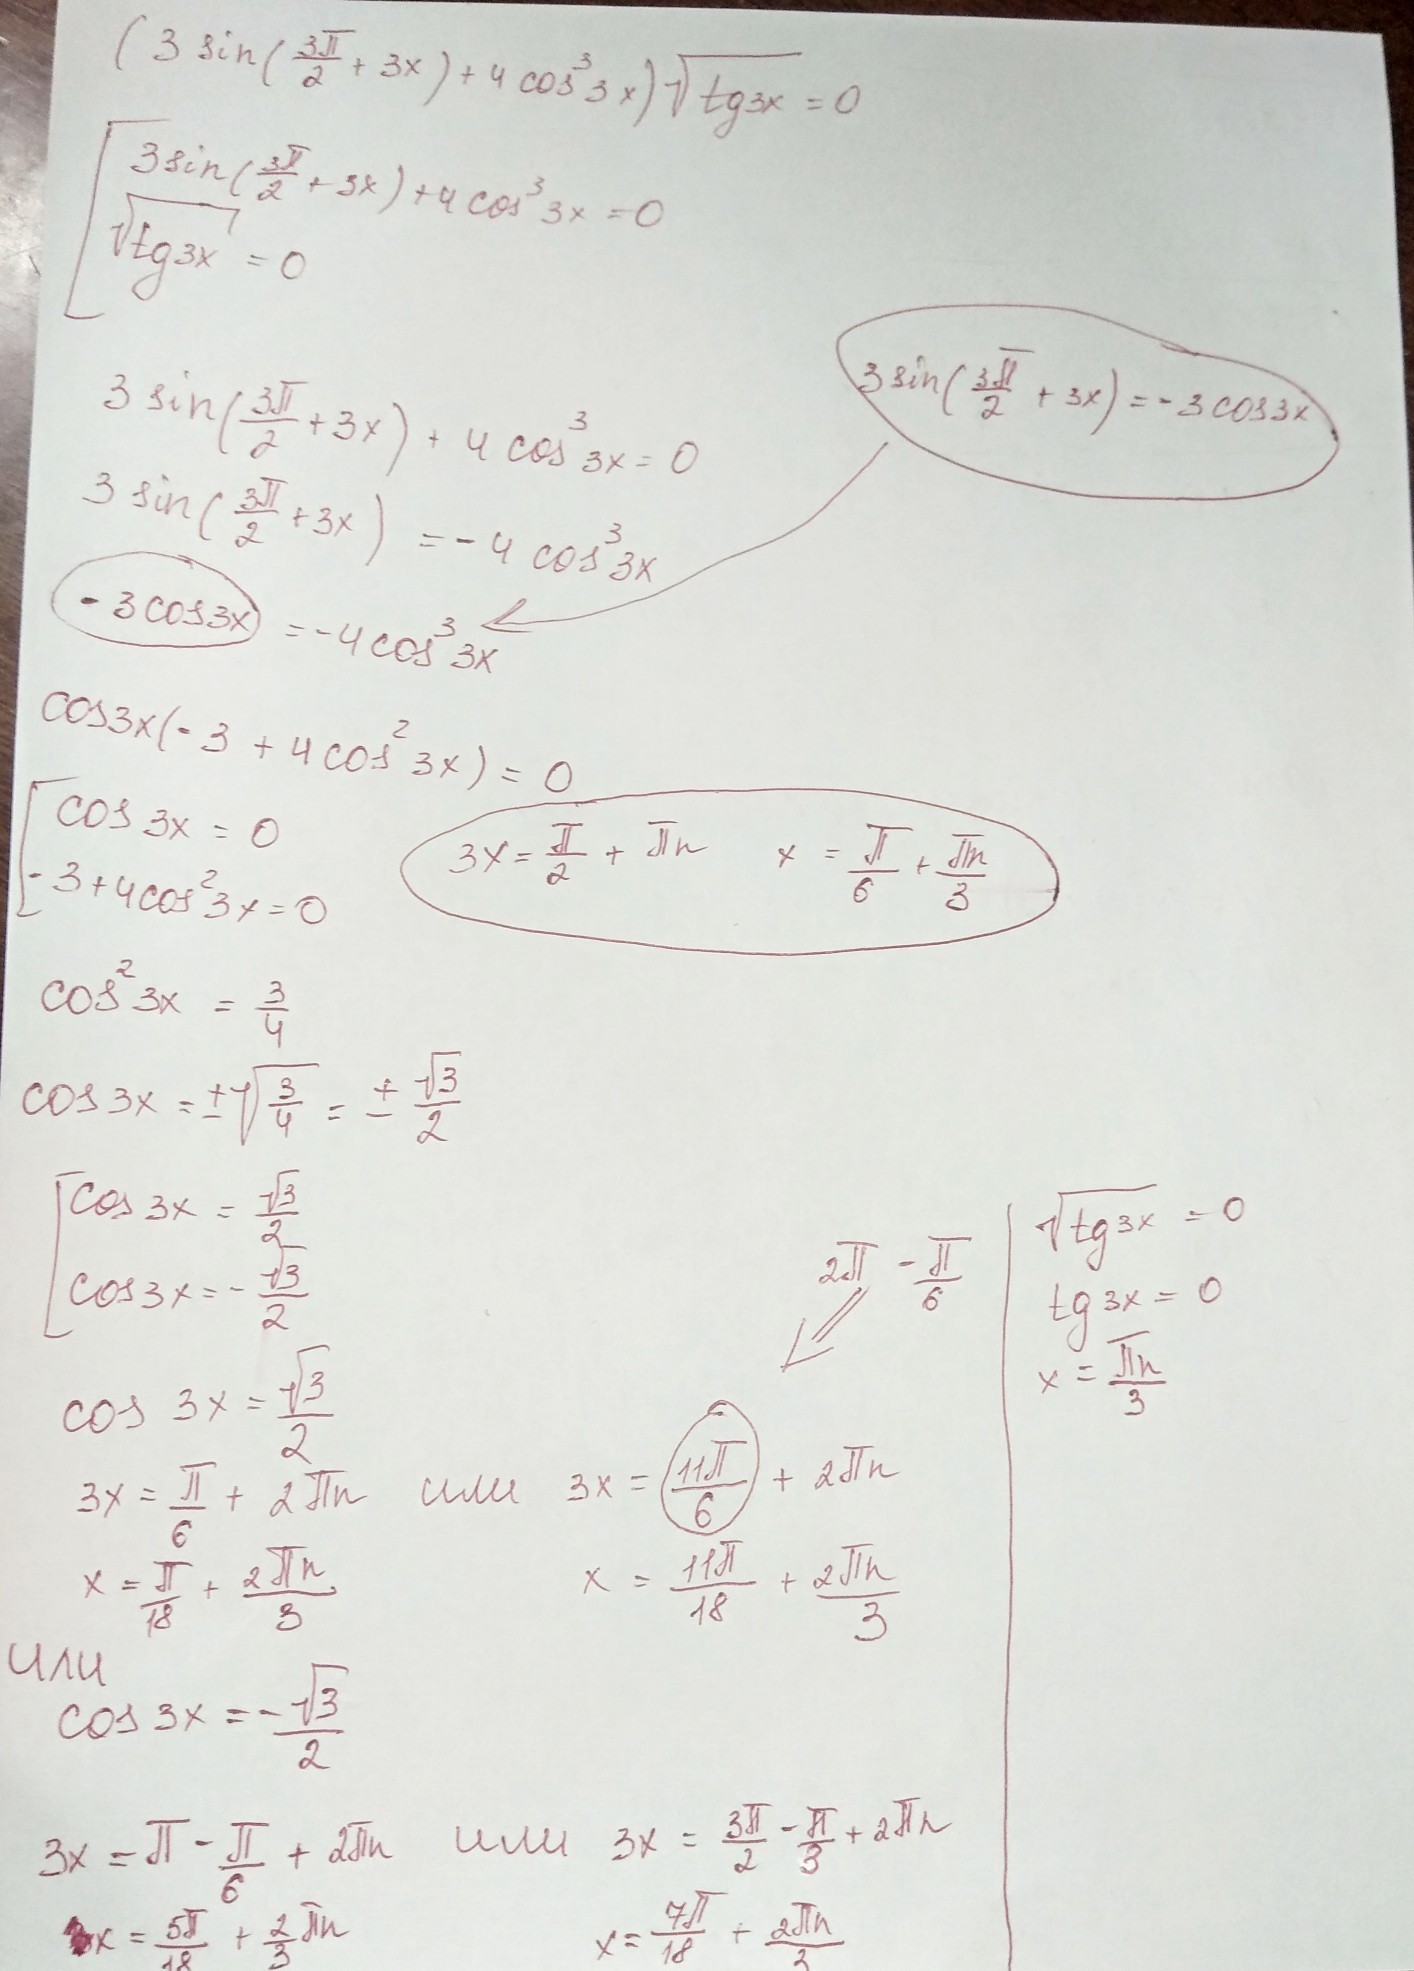 (3 sin(3π/2 + 3x) + 4 cos³ 3x) √(tg 3x) = 0
3 sin(3π/2 + 3x) + 4 cos³ 3x = 0
√(tg 3x) = 0
3 sin(3π/2 + 3x) = -3 cos 3x
3 sin(3π/2 + 3x) + 4 cos³ 3x = 0
3 sin(3π/2 + 3x) = -4 cos³ 3x
-3 cos 3x = -4 cos³ 3x
cos 3x(-3 + 4 cos² 3x) = 0
cos 3x = 0
-3 + 4 cos² 3x = 0
3x = π/2 + πn   x = π/6 + πn/3
cos² 3x = 3/4
cos 3x = ±√(3/4) = ±√3/2
cos 3x = √3/2
cos 3x = -√3/2
2π - π/6
cos 3x = √3/2
3x = π/6 + 2πn или 3x = 11π/6 + 2πn
x = π/18 + 2πn/3   x = 11π/18 + 2πn/3
или
cos 3x = -√3/2
3x = π - π/6 + 2πn или 3x = 3π/2 - π/3 + 2πn
x = 5π/18 + 2/3 πn   x = 7π/18 + 2πn/3
√(tg 3x) = 0
tg 3x = 0
x = πn/3